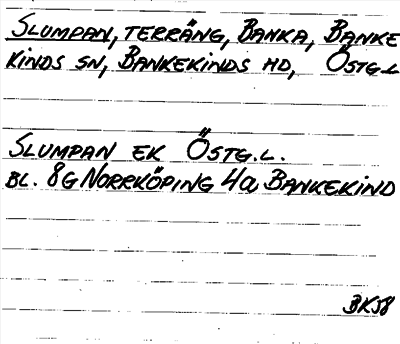 SLUMPAN, TERRÄNG, BANKA, BANKE
KINDS SN, BANKEKINDS HD, ÖSTG.L
SLUMPAN EK ÖSTG.L.
BL. 8G NORRKÖPING 4a, BANKEKIND
BK58